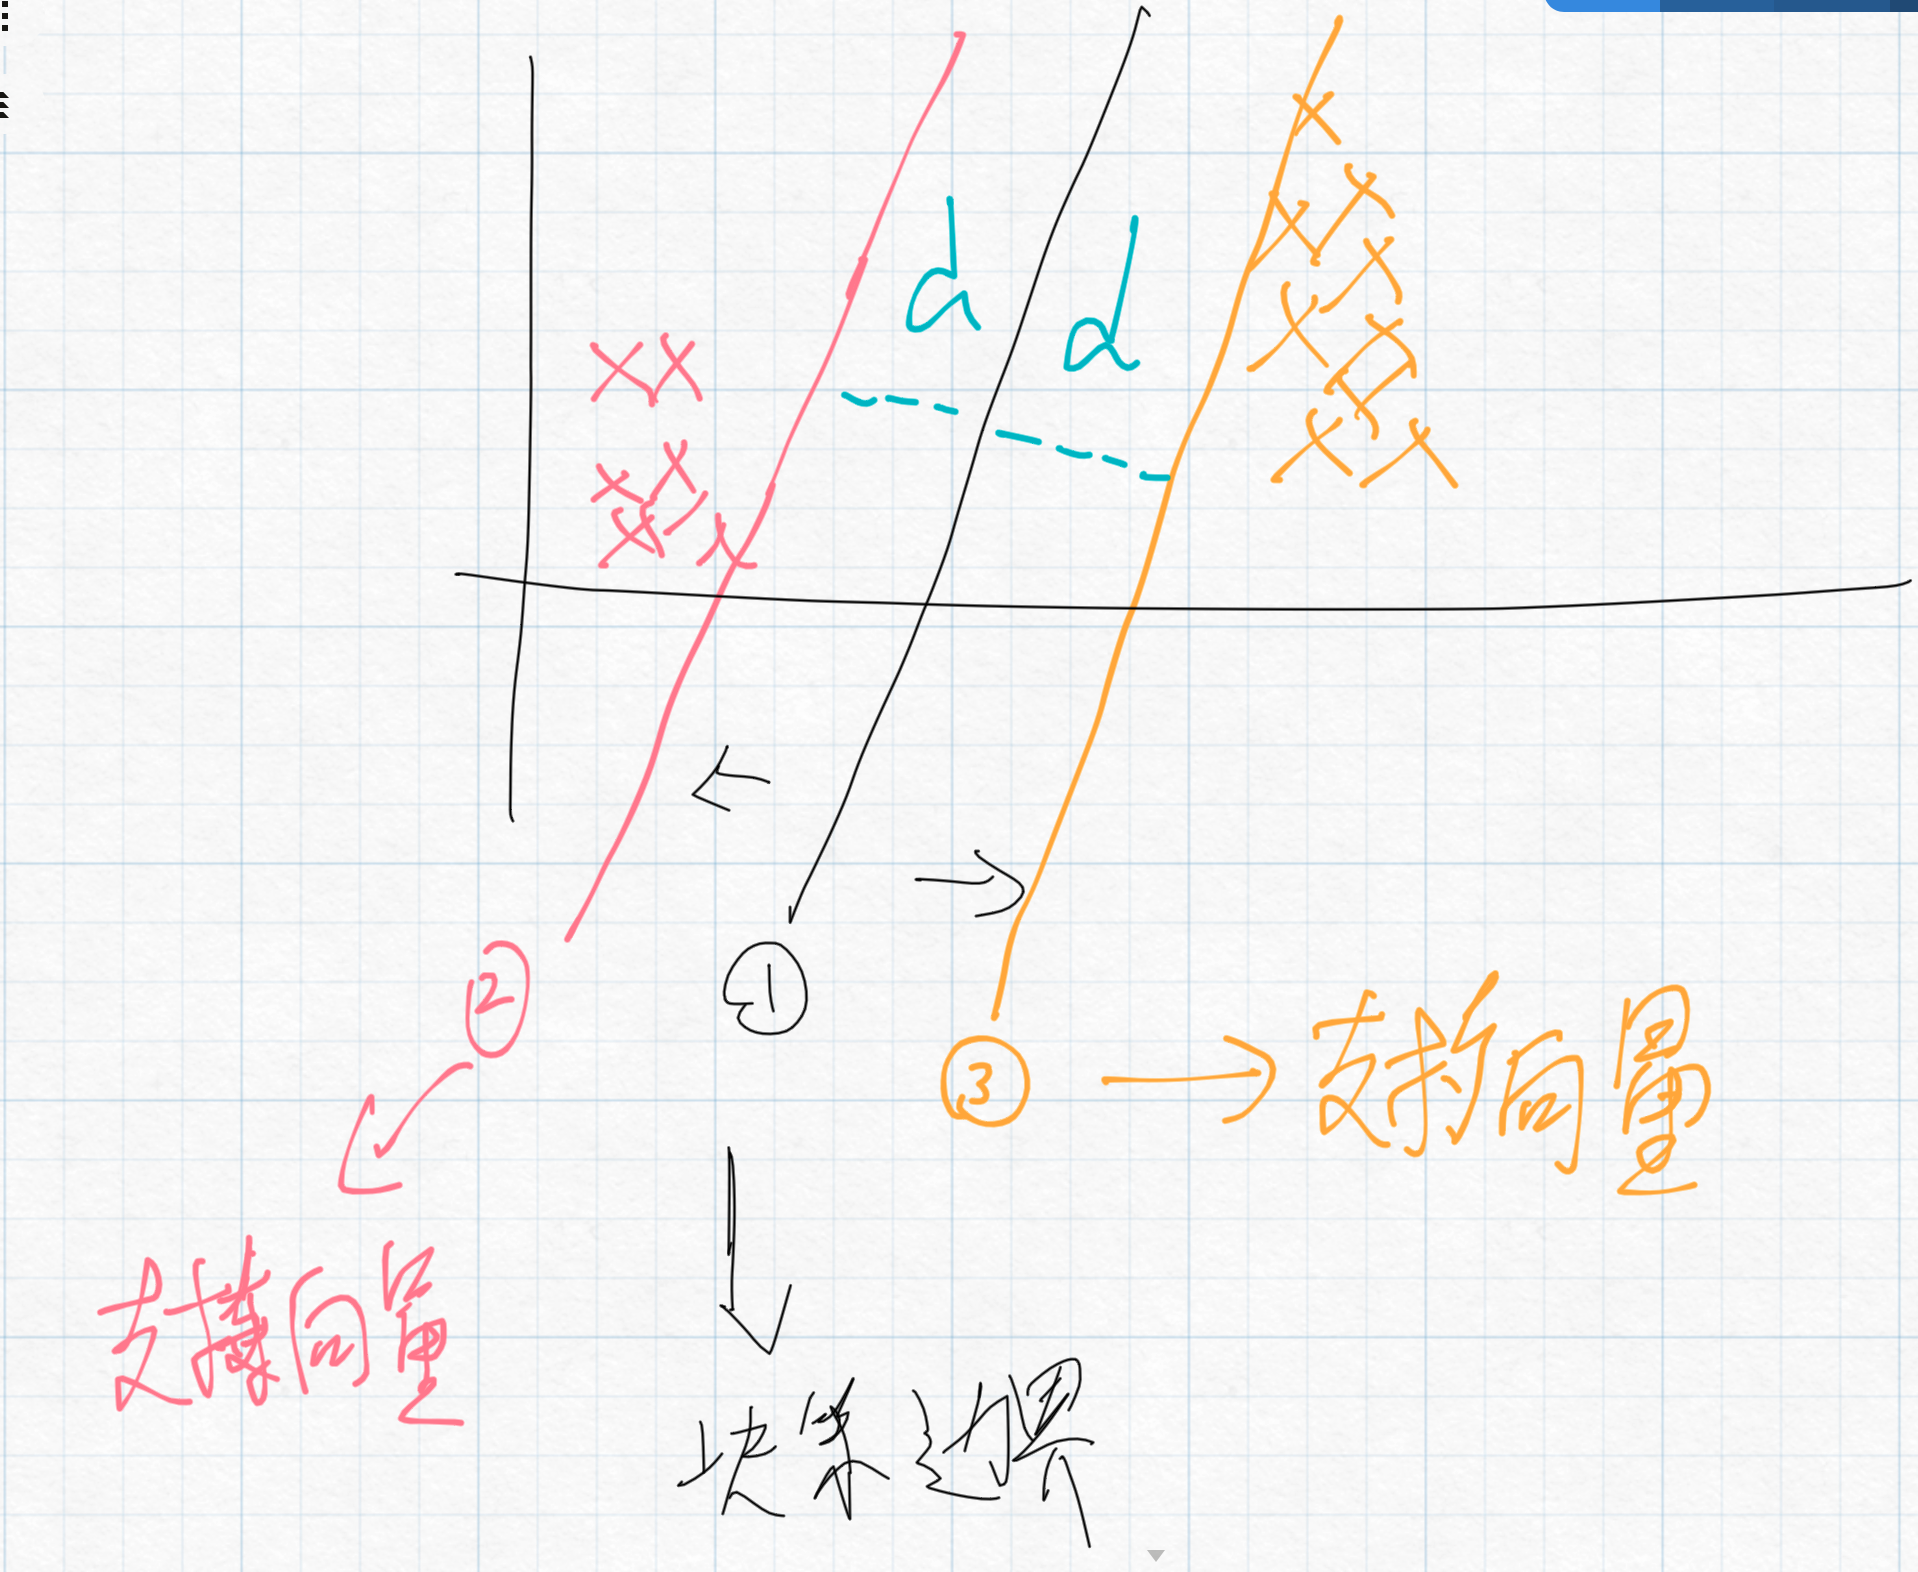 d
d
②
①
③
支撑向量
支撑向量
决策边界